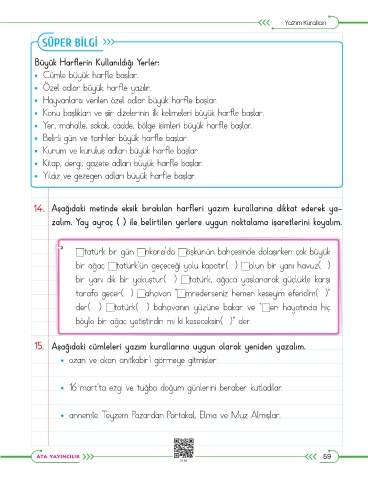 Yazım Kuralları
SÜPER BİLGİ
Büyük Harflerin Kullanıldığı Yerler:
• Cümle büyük harfle başlar.
• Özel adlar büyük harfle yazılır.
• Hayvanlara verilen özel adlar büyük harfle başlar.
• Konu başlıkları ve şiir dizelerinin ilk kelimeleri büyük harfle başlar.
• Yer, mahalle, sokak, cadde, bölge isimleri büyük harfle başlar.
• Belirli gün ve tarihler büyük harfle başlar.
• Kurum ve kuruluş adları büyük harfle başlar.
• Kitap, dergi, gazete adları büyük harfle başlar.
• Yıldız ve gezegen adları büyük harfle başlar.
14. Aşağıdaki metinde eksik bırakılan harfleri yazım kurallarına dikkat ederek ya-
zalım. Yay ayraç ( ) ile belirtilen yerlere uygun noktalama işaretlerini koyalım.
□tatürk bir gün □nkara'da □öşkünün bahçesinde dolaşırken çok büyük
bir ağaç □tatürk'ün geçeceği yolu kapatır( ) □olun bir yanı havuz( )
bir yanı dik bir yokuştur( ) □tatürk, ağaca yaslanarak güçlükle karşı
tarafa geçer( ) □ahçıvan "□mrederseniz hemen keseyim efendim( )"
der( ) □tatürk( ) bahçıvanın yüzüne bakar ve "□en hayatında hiç
böyle bir ağaç yetiştirdin mi ki keseceksin( )" der.
15. Aşağıdaki cümleleri yazım kurallarına uygun olarak yeniden yazalım.
• ozan ve okan anıtkabir'i görmeye gitmişler.
• 16 mart'ta ezgi ve tuğba doğum günlerini beraber kutladılar.
• annemle Teyzem Pazardan Portakal, Elma ve Muz Almışlar.
ATA YAYINCILIK
59